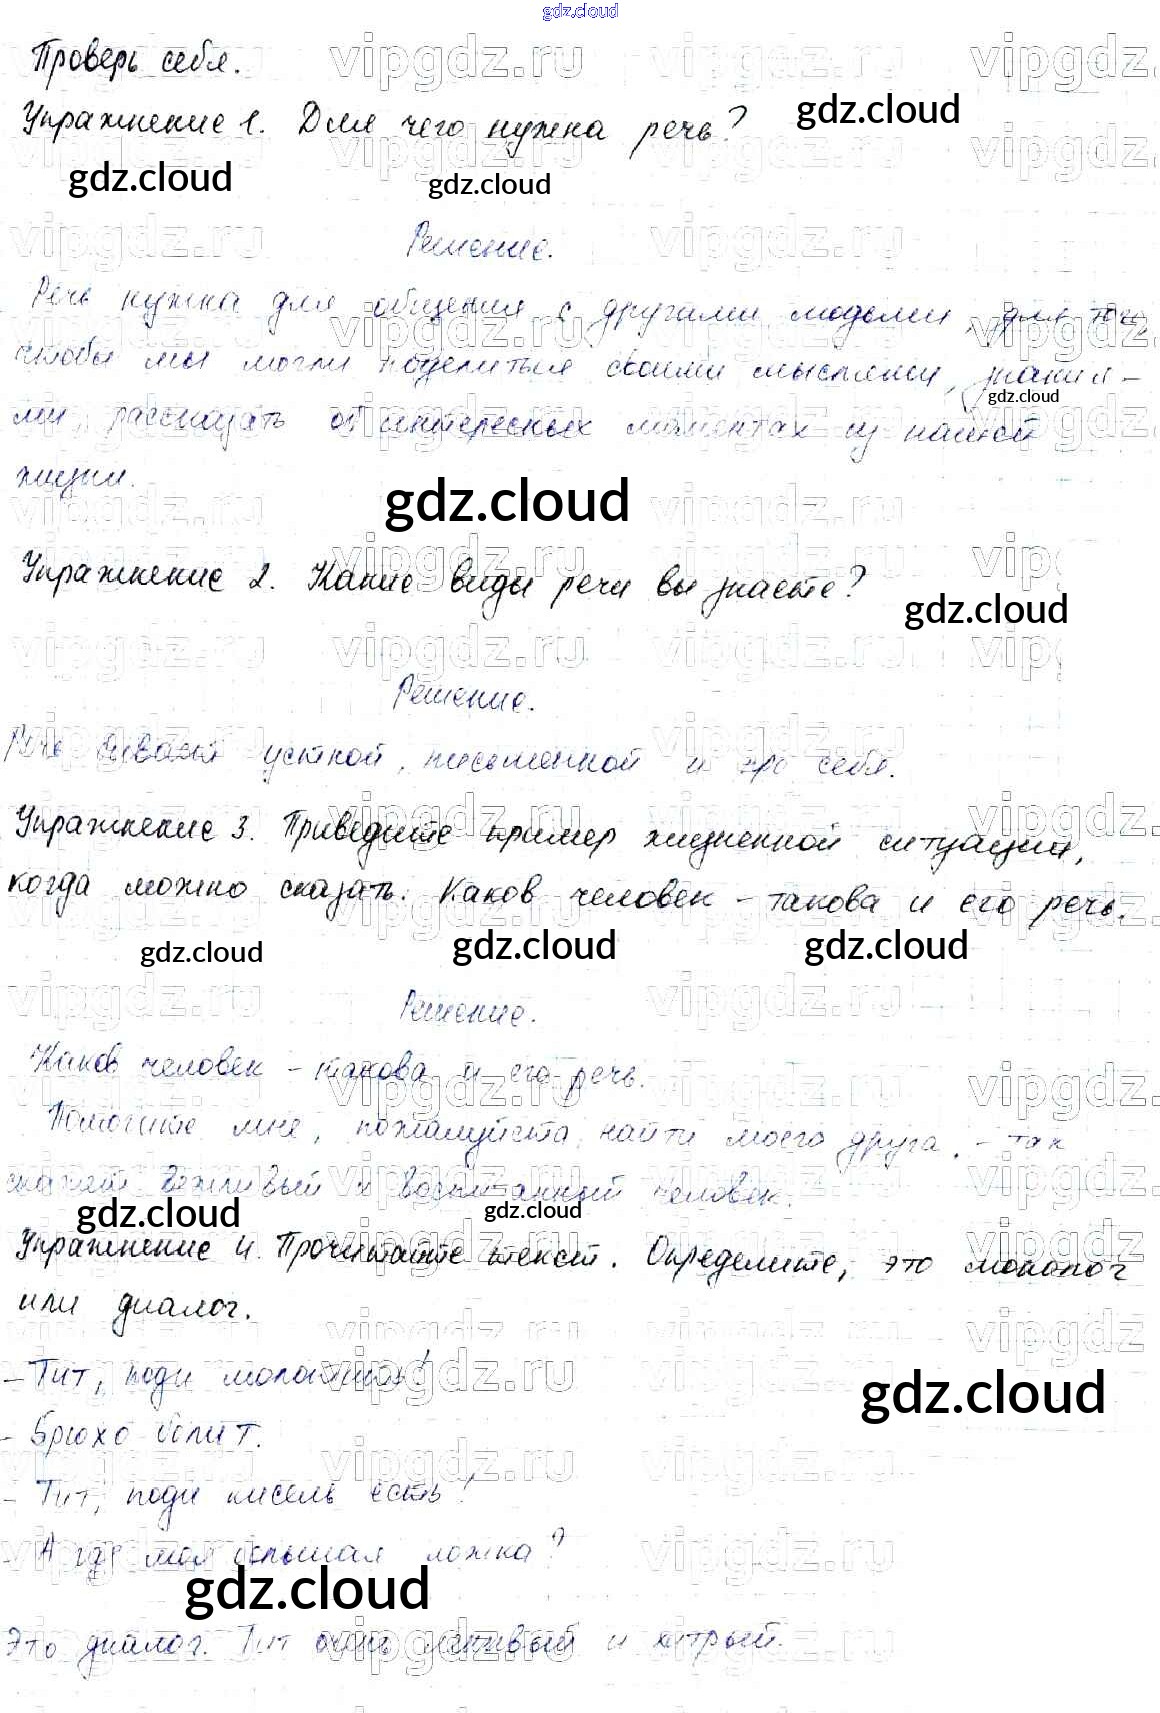 gdz.cloud
Проверь себя.
Упражнение 1. Для чего нужна речь?
gdz.cloud
gdz.cloud gdz.cloud
Решение.
Речь нужна для общения с другими людьми, для того,
чтобы мы могли поделиться своими мыслями, знания-
gdz.cloud
ми, рассказать об интересных моментах из нашей
жизни.
gdz.cloud
Упражнение 2. Какие виды речи вы знаете?
gdz.cloud
Решение.
Речь бывает устной, письменной и про себя.
Упражнение 3. Приведите пример жизненной ситуации,
когда можно сказать: Каков человек - такова и его речь.
gdz.cloud gdz.cloud gdz.cloud
Решение.
Каков человек - такова и его речь.
Помогите мне, пожалуйста, найти моего друга. - так
скажет вежливый и воспитанный человек.
gdz.cloud gdz.cloud
Упражнение 4. Прочитайте текст. Определите, это монолог
или диалог.
- Тит, поди молотить!
gdz.cloud
- Брюхо болит.
- Тит, поди кисель есть!
- А где моя большая ложка?
gdz.cloud
Это диалог. Тит очень ленивый и хитрый.
vipgdz.ru